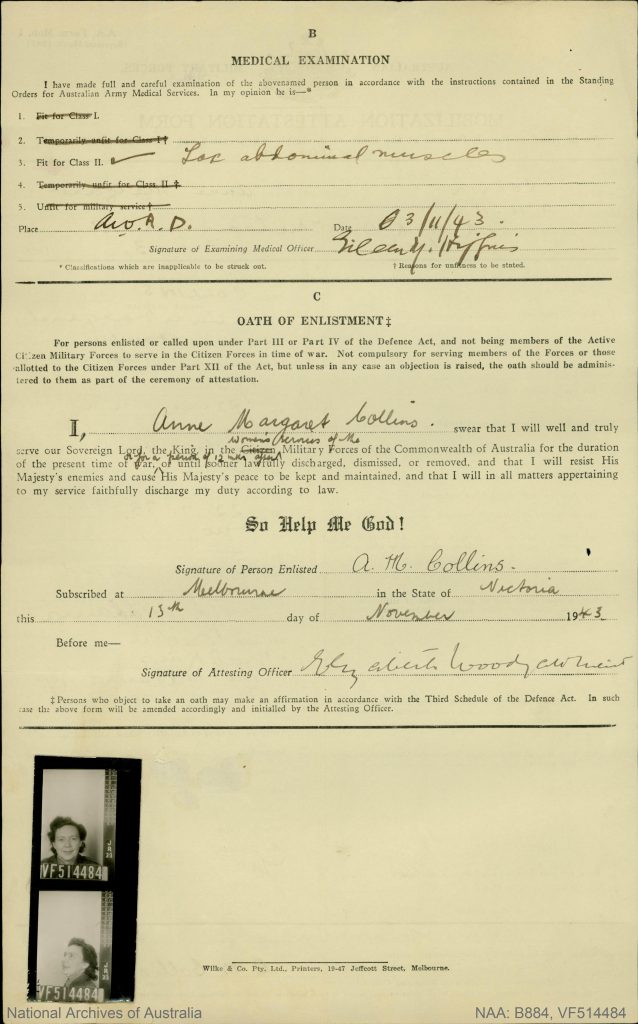 B
MEDICAL EXAMINATION
I have made full and careful examination of the abovenamed person in accordance with the instructions contained in the Standing
Orders for Australian Army Medical Services. In my opinion he is—*
1. Fit for Class I.
2. Temporarily unfit for Class I †
3. Fit for Class II. ✓ Lax abdominal muscles
4. Temporarily unfit for Class II ‡
5. Unfit for military service †
Place Date 03/11/43.
Signature of Examining Medical Officer
* Classifications which are inapplicable to be struck out. † Reasons for unfitness to be stated.
C
OATH OF ENLISTMENT‡
For persons enlisted or called upon under Part III or Part IV of the Defence Act, and not being members of the Active
Citizen Military Forces to serve in the Citizen Forces in time of war. Not compulsory for serving members of the Forces or those
allotted to the Citizen Forces under Part XII of the Act, but unless in any case an objection is raised, the oath should be adminis-
tered to them as part of the ceremony of attestation.
I, Anne Margaret Collins. swear that I will well and truly
women's services of the
serve our Sovereign Lord, the King, in the Citizen Military Forces of the Commonwealth of Australia for the duration
or for a period of 12 months
of the present time of war, or until sooner lawfully discharged, dismissed, or removed, and that I will resist His
Majesty's enemies and cause His Majesty's peace to be kept and maintained, and that I will in all matters appertaining
to my service faithfully discharge my duty according to law.
So Help Me God!
Signature of Person Enlisted A. M. Collins.
Subscribed at Melbourne in the State of Victoria
this 13th day of November 1943
Before me—
Signature of Attesting Officer Elizabeth
‡ Persons who object to take an oath may make an affirmation in accordance with the Third Schedule of the Defence Act. In such
case the above form will be amended accordingly and initialled by the Attesting Officer.
VF514484
VF514484
Wilke & Co. Pty. Ltd., Printers, 19-47 Jeffcott Street, Melbourne.
National Archives of Australia NAA: B884, VF514484